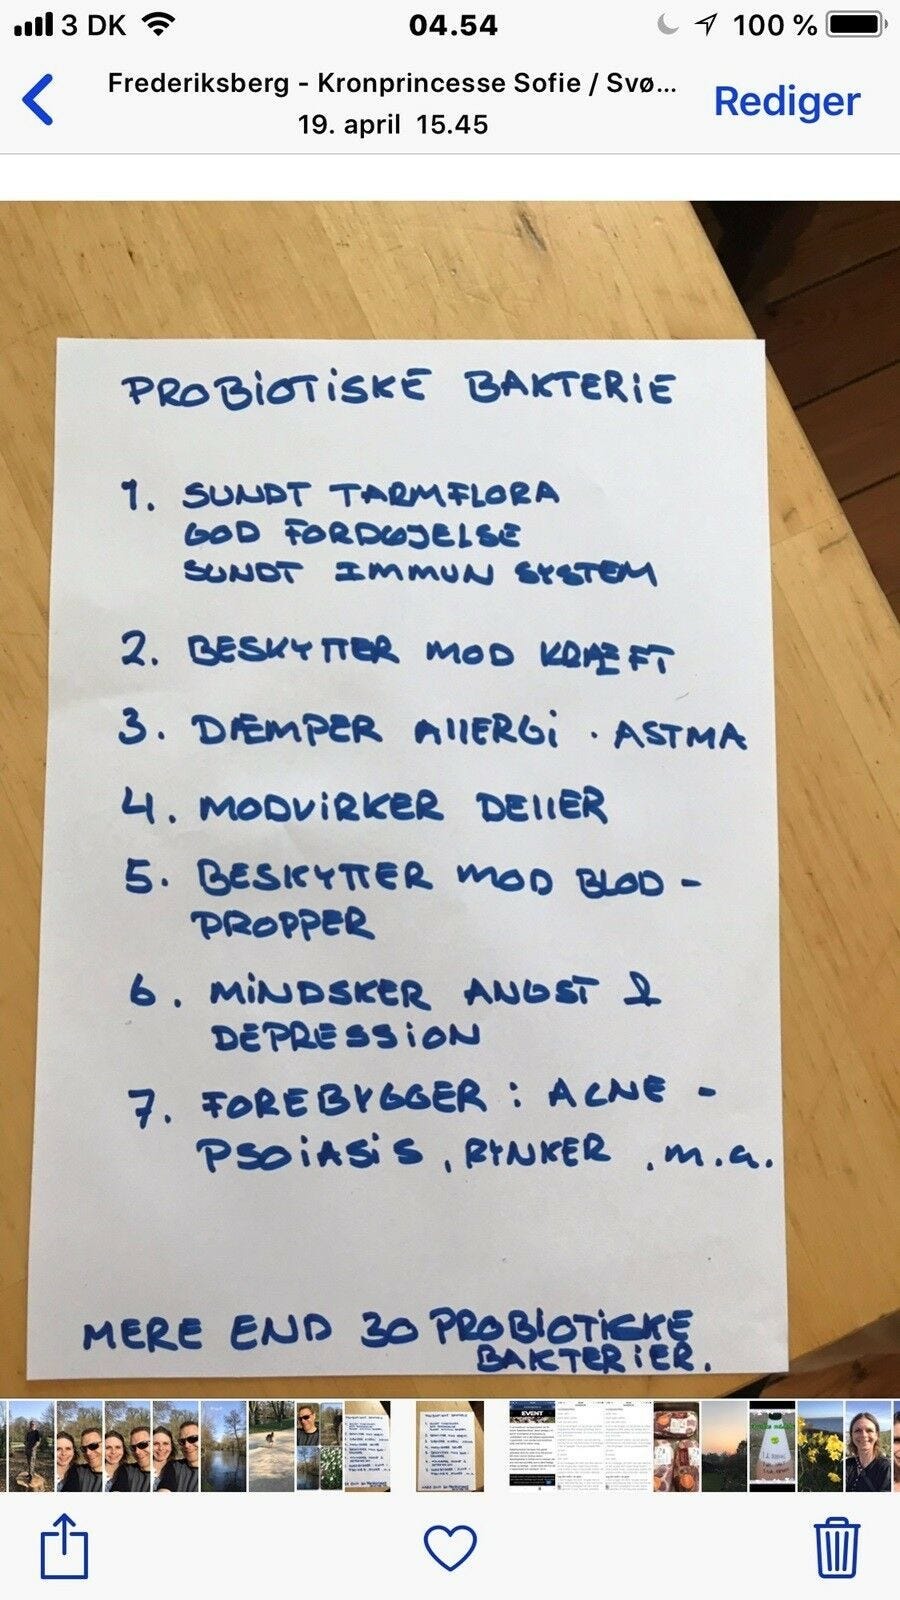 3 DK
04.54
100 %
Frederiksberg - Kronprincesse Sofie / Svø...
19. april 15.45
Rediger
PROBIOTISKE BAKTERIE
1. SUNDT TARMFLORA
GOD FORDØJELSE
SUNDT IMMUN SYSTEM
2. BESKYTTER MOD KRÆFT
3. DÆMPER AllERGi . ASTMA
4. MODVIRKER DEllER
5. BESKYTTER MOD BLOD -
PROPPER
6. MINDSKER ANGST &
DEPRESSION
7. FOREBYGGER : ACNE -
PSOIASIS, RYNKER, m.a.
MERE END 30 PROBIOTISKE
BAKTERIER.
EVENT